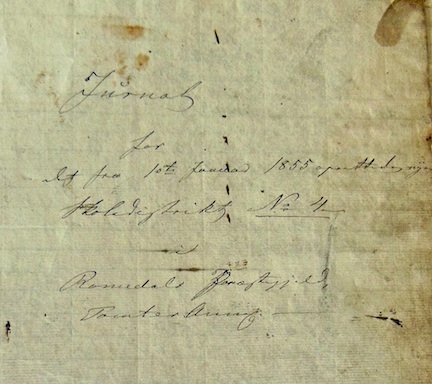 Journal
for
det fra 10de Januar 1855 oprettede nye
Skoledistrikt No 4
i
Romedals Præstegjeld,
Tomter Annex.